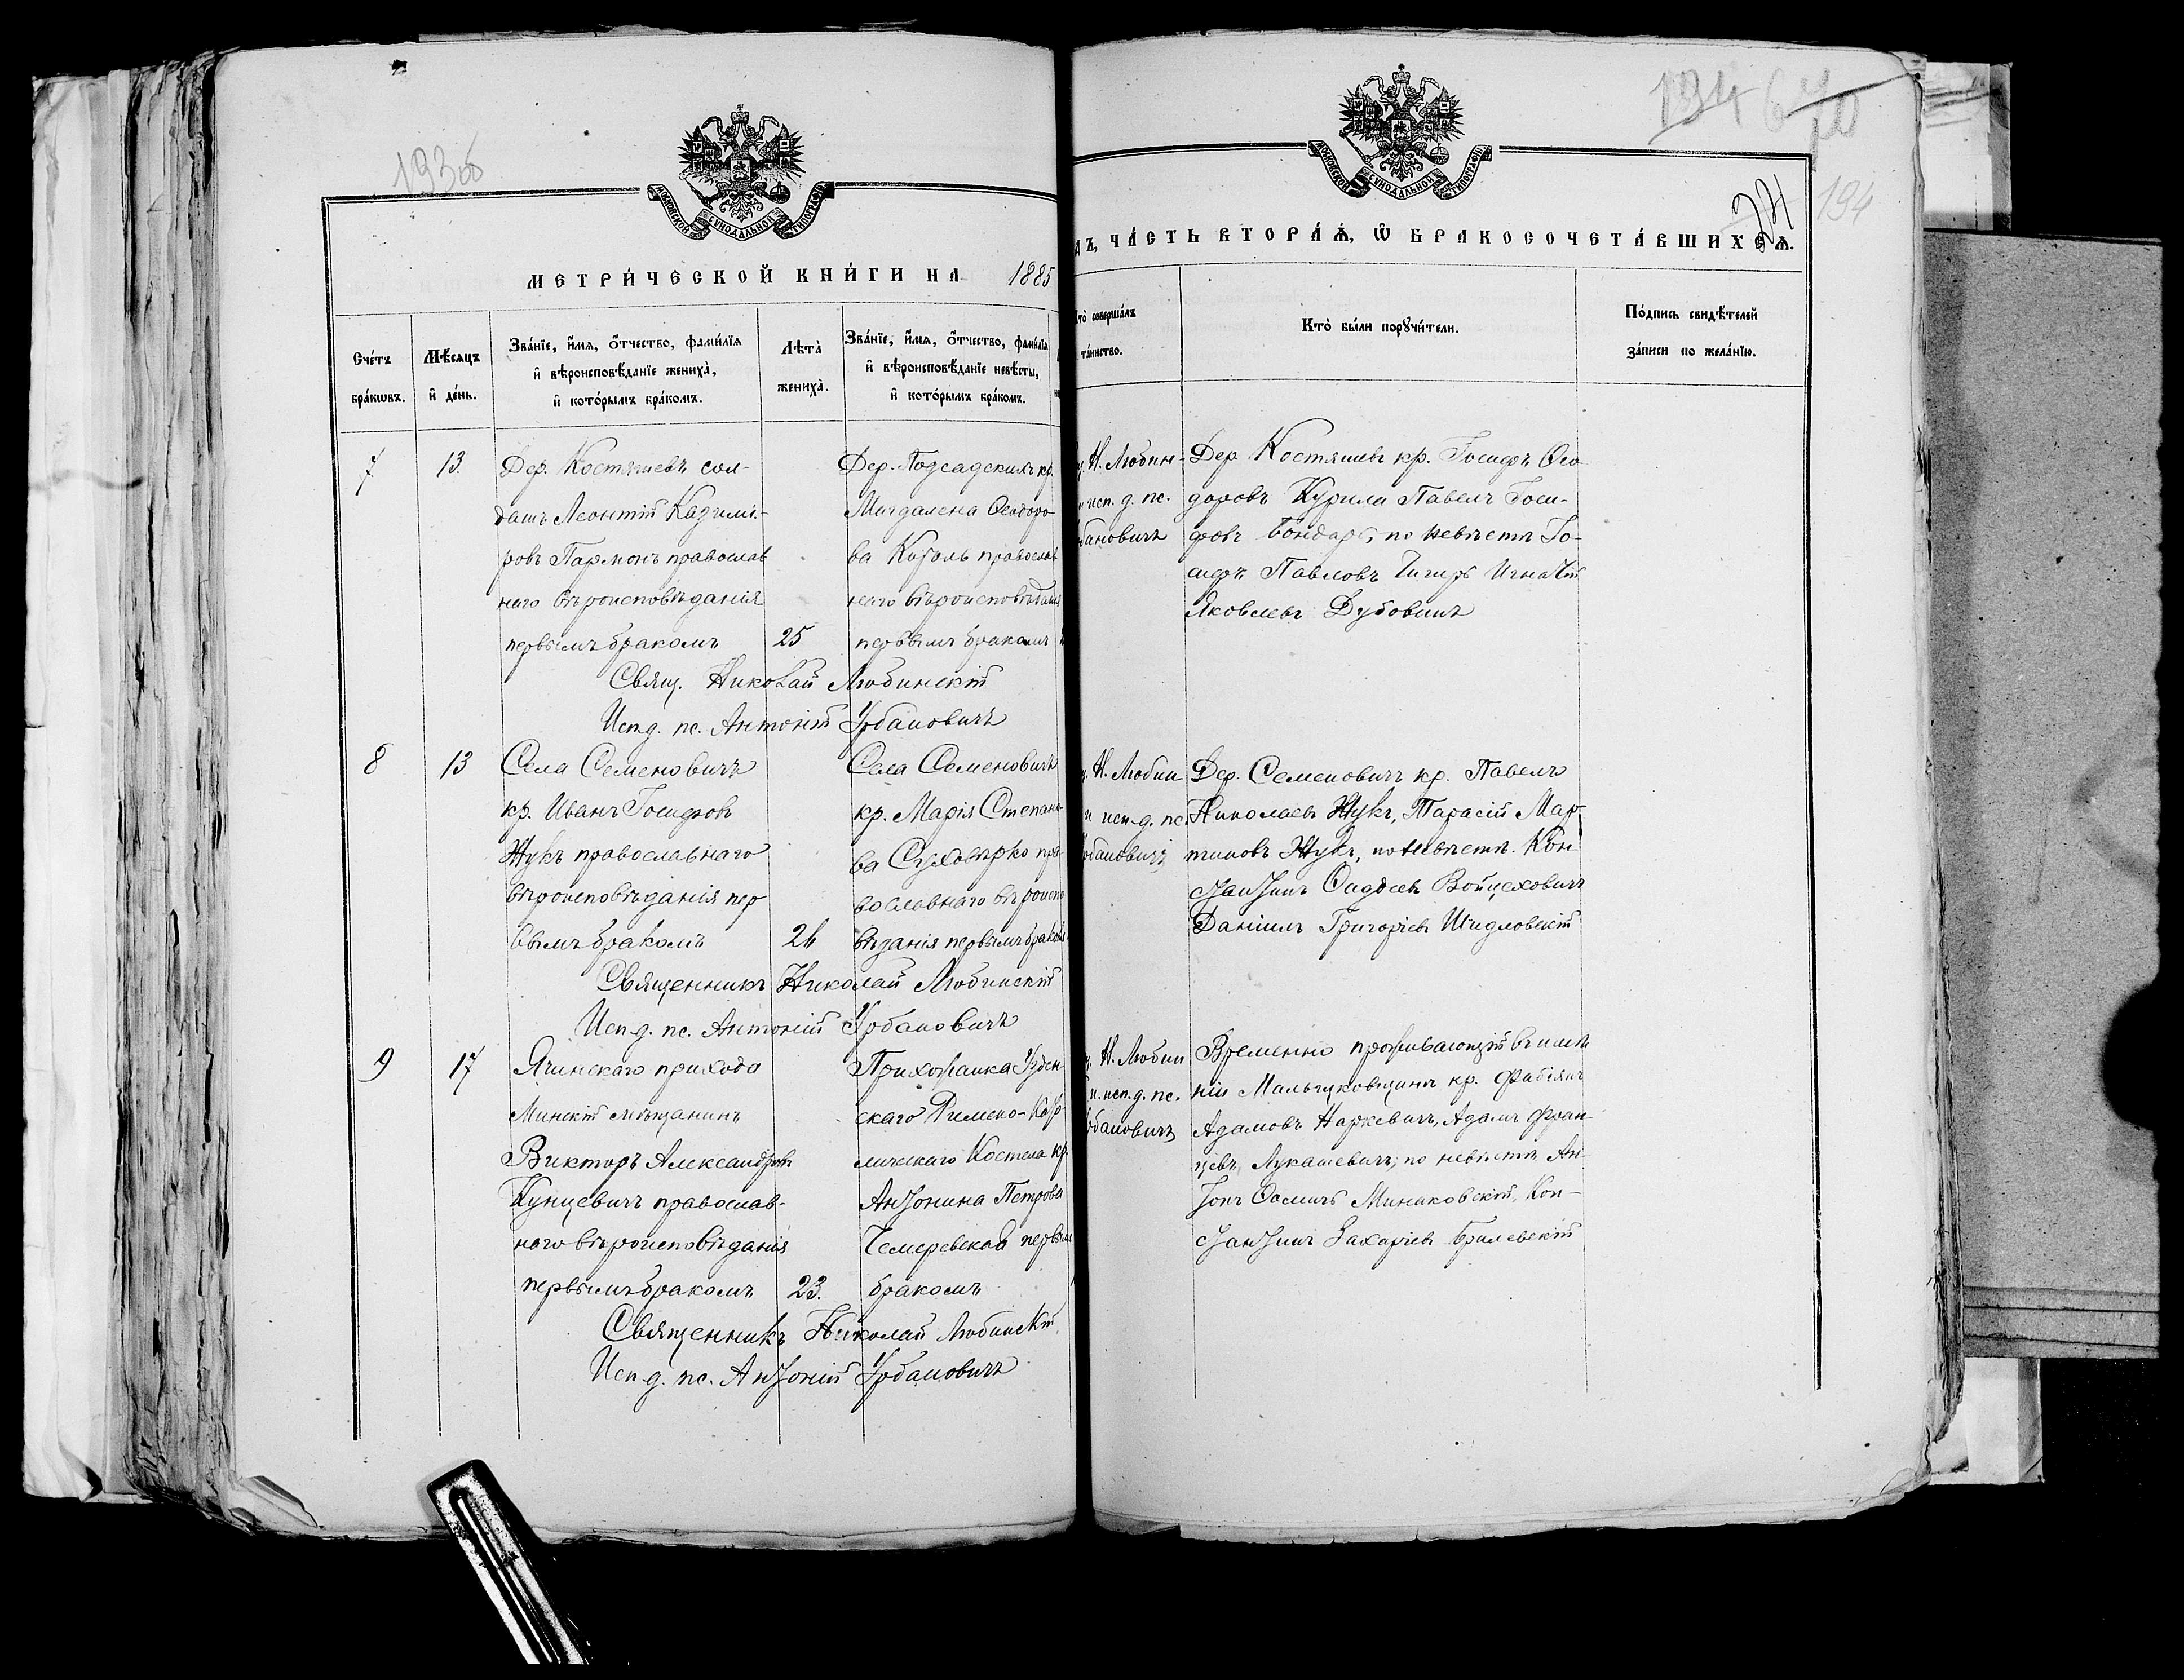 193об
МОСКОВСКОЙ СѴНОДАЛЬНОЙ ТИПОГРАФІИ
МЕТРИ́ЧЕСКОЙ КНИ́ГИ НА 1885
Сче́тъ бра́кѡвъ.
Мѣ́сяцъ и҆ де́нь.
Зва́нїе, и҆́мя, ѻ҆́тчество, фами́лїя
и҆ вѣроисповѣ́данїе жениха̀,
и҆ кото́рымъ бра́комъ.
Лѣта̀ жениха̀.
Зва́нїе, и҆́мя, ѻ҆́тчество, фами́лїя
и҆ вѣроисповѣ́данїе невѣ́сты,
и҆ кото́рымъ бра́комъ.
7
13.
Дер. Костяшевъ сол-
датъ Леонтій Казими-
ровъ Пармонъ православ
наго вѣроисповѣданія
первымъ бракомъ
25
Дер. Подсадскихъ кр.
Магдалена Ѳеодоро-
ва Король православ
наго вѣроисповѣданія
первымъ бракомъ
Свящ. Николай Любинскій
Исп. д. пс. Антоній Урбановичъ
8
13
Села Семеновичъ
кр. Иванъ Іосифовъ
Жукъ православнаго
вѣроисповѣданія пер
вымъ бракомъ
26
Села Семеновичъ
кр. Марія Степано-
ва Суховѣрко пра-
вославнаго вѣроиспо
вѣданія первымъ бракомъ
Священникъ Николай Любинскій
Исп. д. пс. Антоній Урбановичъ
9
17
Ячинскаго прихода
Минскій мѣщанинъ
Викторъ Александровъ
Кунцевичъ православ-
наго вѣроисповѣданія
первымъ бракомъ
23.
Прихожанка Узден-
скаго Римско-Като-
лическаго Костела кр.
Антонина Петрова
Чемеревская первымъ
бракомъ
Священникъ Николай Любинскій
Исп. д. пс. Антоній Урбановичъ
194
194
МОСКОВСКОЙ СѴНОДАЛЬНОЙ ТИПОГРАФІИ
ДЪ, ЧА́СТЬ ВТОРА́Ѧ, Ѡ҆ БРАКОСОЧЕТА́ВШИХСѦ.
Кто̀ соверша́лъ
та́инство.
Кто̀ бы́ли порꙋчи́тели.
По́дпись свидѣ́телей
за́писи по жела́нїю.
Н. Любин-
исп. д. пс.
бановичъ
Дер Костяшевъ кр. Іосифъ Ѳео
доровъ Курила Павелъ Іоси-
фовъ Бондарь, по невѣстѣ Іо-
сифъ Павловъ Чигирь Игнатій
Яковлевъ Дубовикъ
Н. Любин
исп. д. пс.
рбановичъ
Дер. Семеновичъ кр. Павелъ
Николаевъ Жукъ, Тарасій Мар-
тиновъ Жукъ, по невѣстѣ. Кон
стантинъ Ѳаддеевъ Войцеховичъ
Даніилъ Григорьевъ Шидловскій
Н. Любин
исп. д. пс.
рбановичъ
Временно проживающій въ имѣ
ніи Мальчуковщинѣ кр. Фабіянъ
Адамовъ Наркевичъ, Адамъ Фран-
цевъ Лукашевичъ; по невѣстѣ Ан-
тонъ Ѳоминъ Минаковскій, Кон-
стантинъ Захаріевъ Брилевскій